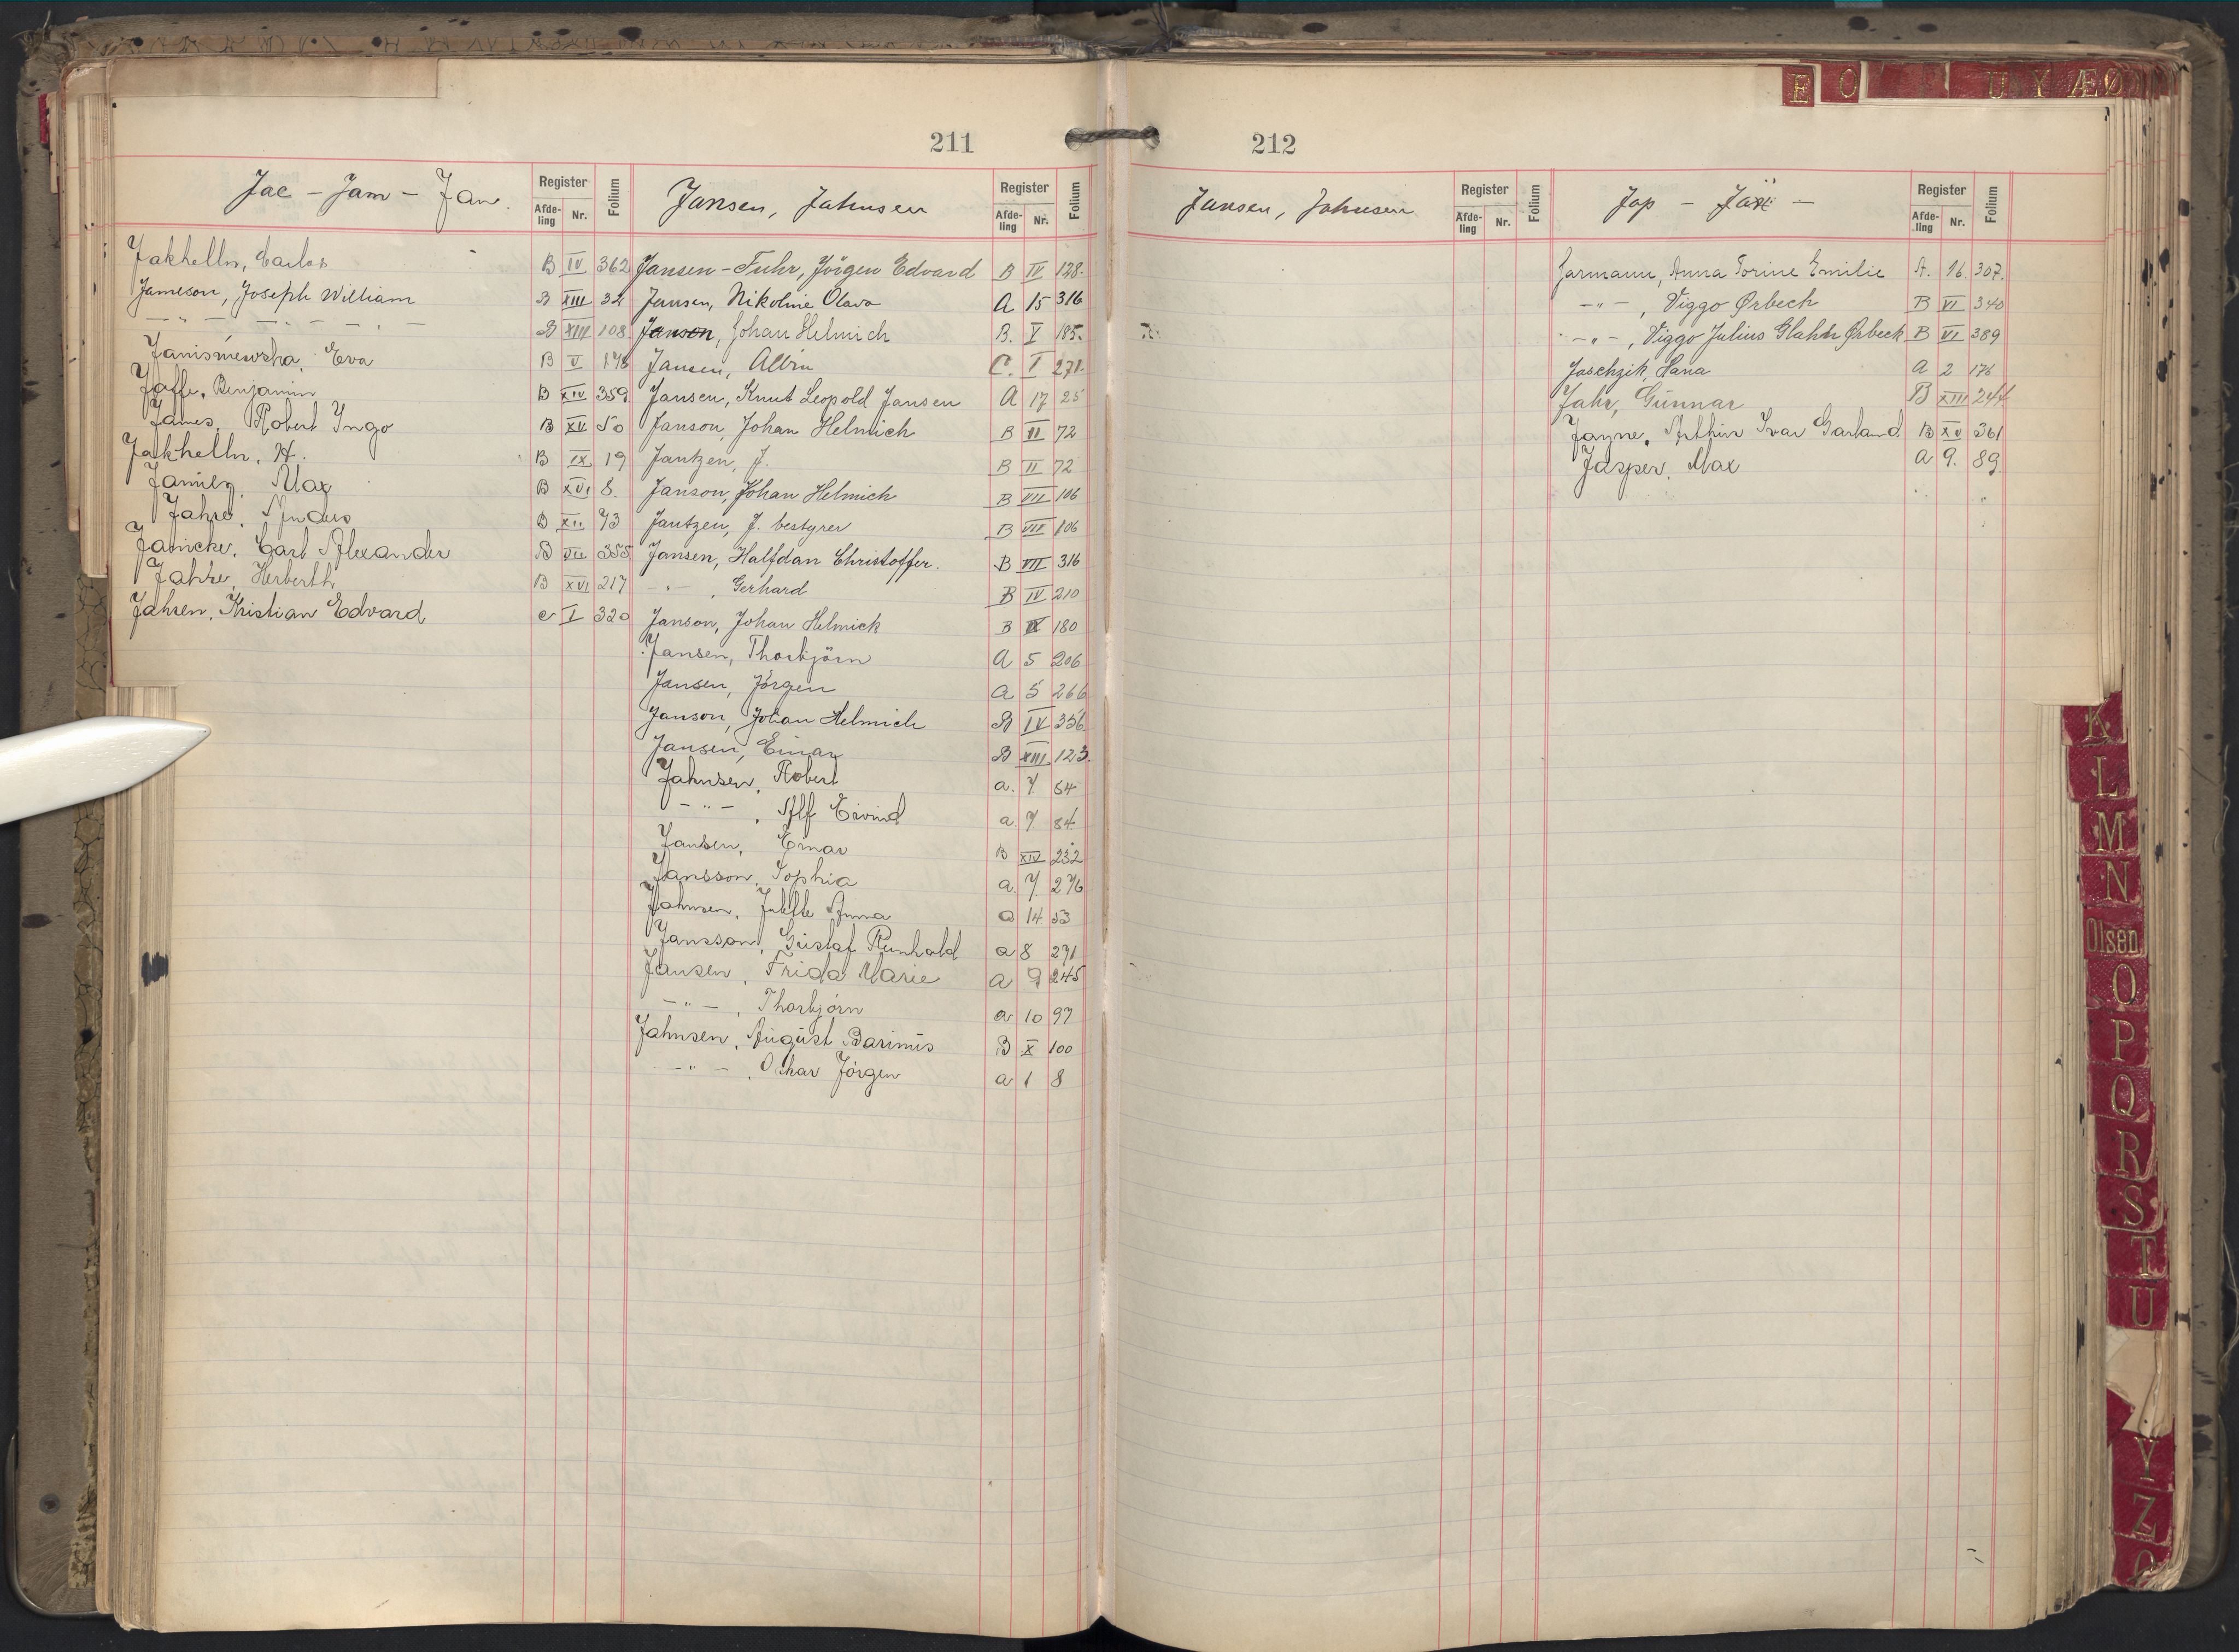 211
Jac - Jam - Jan.
Register
Afde-
ling
Nr.
Folium
Jakhelln, Carlos B IV 362
Jameson, Joseph William B XIII 32
- " - - " - - , - B XIII 108
Janisniewska, Eva B V 178
Jaffe, Benjamin B XIV 359
James, Robert Ingo B XV 50
Jakhelln, H. B IX 19
Max B XVI 8.
Jahre, Anders B XII 73
Janicke, Carl Alexander B VII 355
Jahke, Herberth B XVI 217
Jahren, Kristian Edvard C I 320
Jansen, Jahnsen
Register
Afde-
ling
Nr.
Folium
Jansen-Fuhr, Jörgen Edvard B IV 128.
Jansen, Nikoline Olava A 15 316
Janson, Johan Helmich B. V 185.
Jansen, Albin C. I 271.
Jansen, Knut Leopold Jansen A 17 25
Janson, Johan Helmich B II 72
Jantzen, J. B II 72
Janson, Johan Helmich B VII 106
Jantzen, J. bestyrer B VII 106
Jansen, Halfdan Christoffer. B VII 316
- " - , Gerhard B IV 210
Janson, Johan Helmick B IX 180
Jansen, Thorbjörn A 5 206
Jansen, Jörgen a 5 266
Janson, Johan Helmich B IV 356
Jansen, Einar B XIII 123.
Jahnsen, Robert a. 7 84
- " - , Alf Eivind a 7 84
Jansen, Einar B XIV 232
Jansson, Sophia a. 7. 276
Jahnsen, Anna a 14 53
Jansson, Gustaf Reinhold a 8 291
Jansen, Frida Marie a 9 245
- " - , Thorbjörn a 10 97
Jahnsen, August B X 100
- " - , Oskar Jörgen a 1 8
212
Jansen, Jahnsen
Register
Afde-
ling
Nr.
Folium
Jap - Jäx -
Register
Afde-
ling
Nr.
Folium
Jarmann, Anna Torine Emilie A. 16. 307.
- " - , Viggo Ørbech B VI 340
- " - , Viggo Julius Glahn Ørbeck B VI 389
Jaschzik, Hana A 2 176
Jahr, Gunnar B XIII 244
Jayne, Arthur Ivar Garland B XV 361
Jasper, Max a 9. 89.
E
O
U
Y
Æ
Ø
K
L
M
N
Olsen
O
P
Q
R
S
T
U
Y
Z